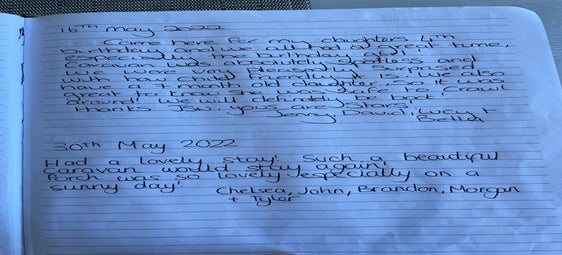 16TH May 2022
Came here for my daughters 4th
birthday and we all had a great time,
especially the birthday girl!
Caravan was absolutely spotless and
we were very pleasantly surprised
with how child friendly it is, we also
have a 7 month old daughter so it was
great to know it was safe to crawl
around! We will definitely be back!
Thanks Jan, you're a star!
Jenny, David, Lucy +
Bella
30th May 2022
Had a lovely stay! Such a beautiful
caravan would stay again,
Porch was so lovely especially on a
sunny day!
Chelsea, John, Brandon, Morgan
+ Tyler